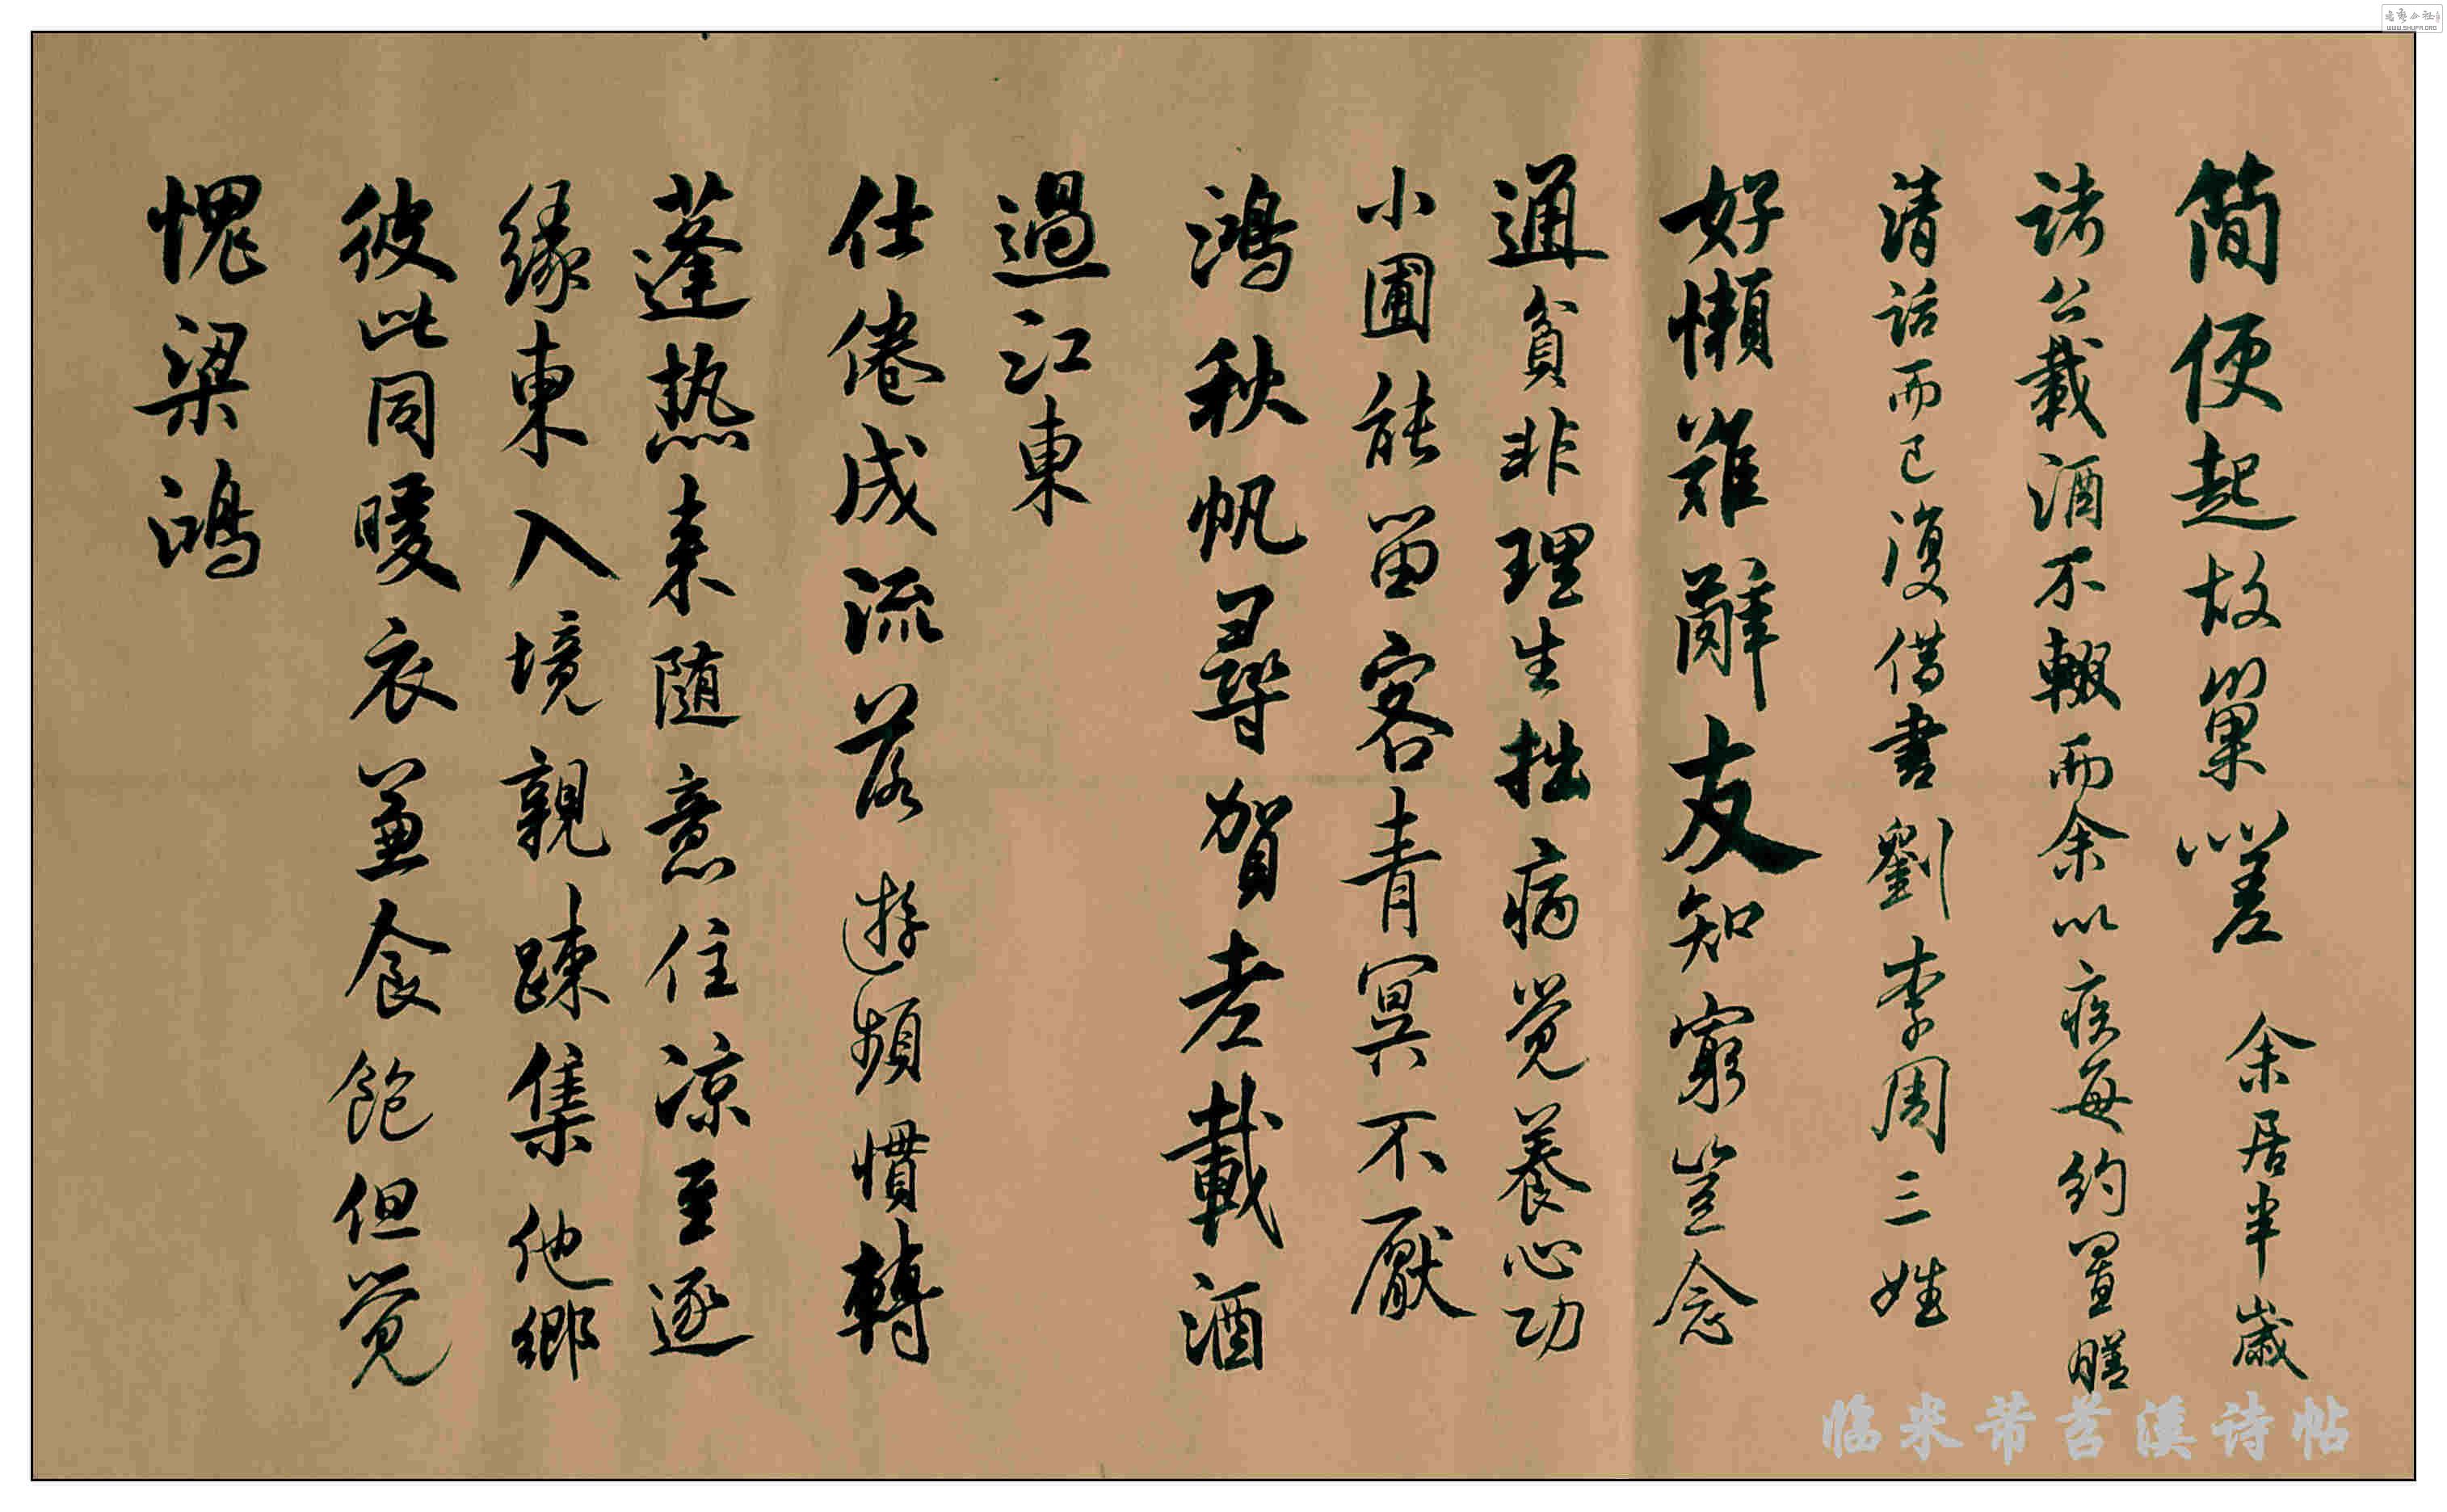 簡便起故巢嗟 余居半歲
諸公載酒不輟而余以疾每約置膳
清話而已復借書劉李周三姓
好懶難辭友知窮豈念
通貧非理生拙病覺養心功
小圃能留客青冥不厭
鴻秋帆尋賀老載酒
過江東
仕倦成流落遊頻慣轉
蓬热来随意住凉至逐
緣東入境親踈集他鄉
彼此同暖衣兼食飽但覺
愧梁鴻
临米芾苕溪诗帖
WWW.SHUFA.ORG